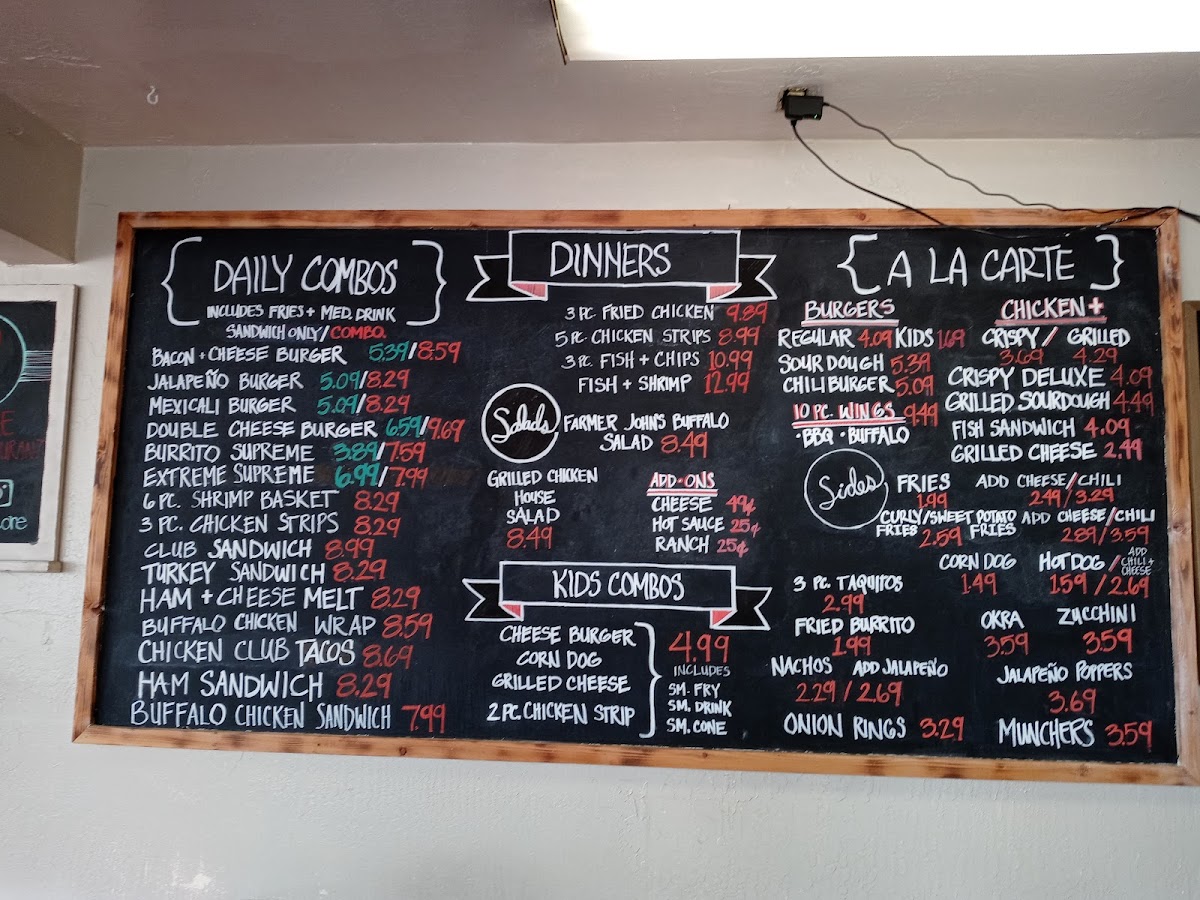 DAILY COMBOS
INCLUDES FRIES + MED. DRINK
SANDWICH ONLY/COMBO
BACON + CHEESE BURGER 5.39/8.59
JALAPEÑO BURGER 5.09/8.29
MEXICALI BURGER 5.09/8.29
DOUBLE CHEESE BURGER 6.59/9.69
BURRITO SUPREME 3.89/7.59
EXTREME SUPREME 6.99/7.99
6 PC. SHRIMP BASKET 8.29
3 PC. CHICKEN STRIPS 8.29
CLUB SANDWICH 8.99
TURKEY SANDWICH 8.29
HAM + CHEESE MELT 8.29
BUFFALO CHICKEN WRAP 8.59
CHICKEN CLUB TACOS 8.69
HAM SANDWICH 8.29
BUFFALO CHICKEN SANDWICH 7.99
DINNERS
3 PC. FRIED CHICKEN 9.89
5 PC. CHICKEN STRIPS 8.99
3 PC. FISH + CHIPS 10.99
FISH + SHRIMP 12.99
Salads
FARMER JOHN'S BUFFALO
SALAD 8.49
GRILLED CHICKEN
HOUSE
SALAD
8.49
ADD-ONS
CHEESE 49¢
HOT SAUCE 25¢
RANCH 25¢
KIDS COMBOS
CHEESE BURGER
CORN DOG
GRILLED CHEESE
2 PC. CHICKEN STRIP
4.99
INCLUDES
SM. FRY
SM. DRINK
SM. CONE
A LA CARTE
BURGERS
REGULAR 4.09 KIDS 1.69
SOUR DOUGH 5.39
CHILI BURGER 5.09
10 PC. WINGS 9.49
· BBQ · BUFFALO
CHICKEN +
CRISPY / GRILLED
3.69 4.29
CRISPY DELUXE 4.09
GRILLED SOURDOUGH 4.49
FISH SANDWICH 4.09
GRILLED CHEESE 2.49
Sides
FRIES ADD CHEESE/CHILI
1.99 2.49/3.29
CURLY/SWEET POTATO ADD CHEESE/CHILI
FRIES 2.59 FRIES 2.89/3.59
CORN DOG HOT DOG / ADD CHILI + CHEESE
1.49 1.59/2.69
3 PC. TAQUITOS
2.99
OKRA ZUCCHINI
3.59 3.59
FRIED BURRITO
1.99
NACHOS ADD JALAPEÑO
2.29/2.69
JALAPEÑO POPPERS
3.69
ONION RINGS 3.29
MUNCHERS 3.59